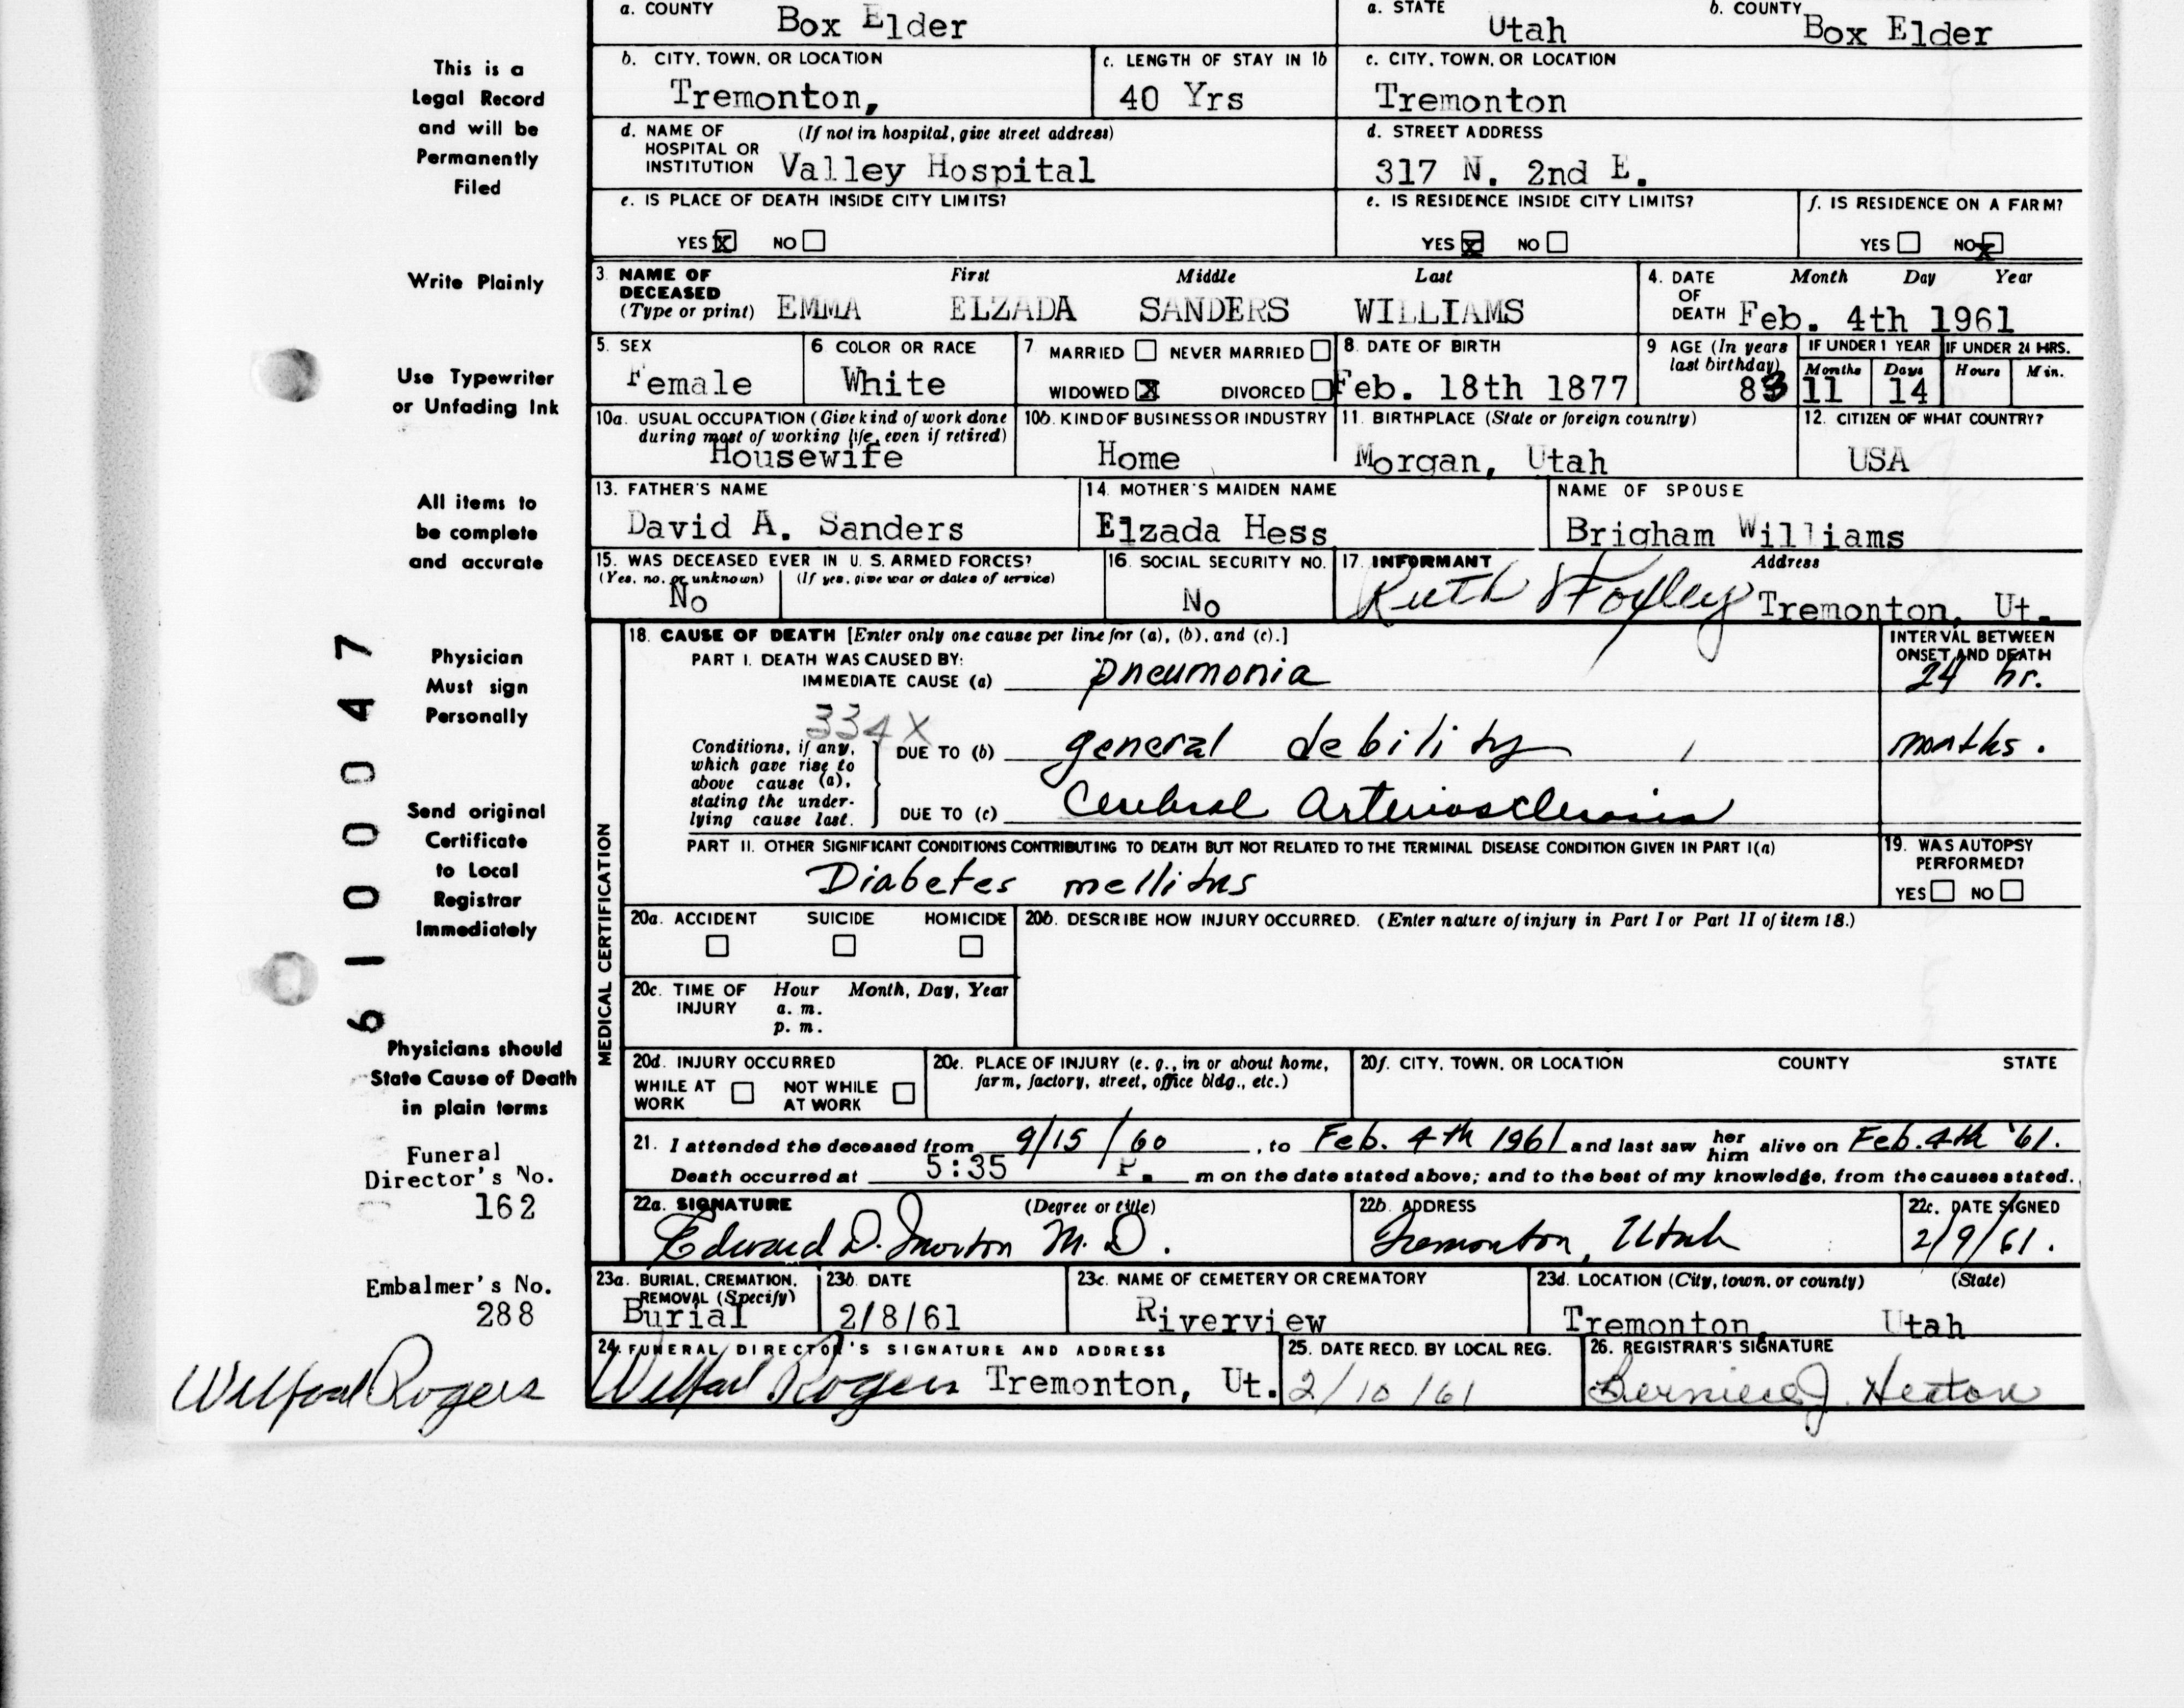 a. COUNTY Box Elder a. STATE Utah b. COUNTY Box Elder
This is a Legal Record and will be Permanently Filed
b. CITY, TOWN, OR LOCATION Tremonton, c. LENGTH OF STAY IN 1b 40 Yrs c. CITY, TOWN, OR LOCATION Tremonton
d. NAME OF HOSPITAL OR INSTITUTION (If not in hospital, give street address) Valley Hospital d. STREET ADDRESS 317 N. 2nd E.
e. IS PLACE OF DEATH INSIDE CITY LIMITS? YES X NO e. IS RESIDENCE INSIDE CITY LIMITS? YES X NO f. IS RESIDENCE ON A FARM? YES NO X
Write Plainly
3. NAME OF DECEASED (Type or print) First Middle Last EMMA ELZADA SANDERS WILLIAMS 4. DATE OF DEATH Month Day Year Feb. 4th 1961
Use Typewriter or Unfading Ink
5. SEX Female 6 COLOR OR RACE White 7 MARRIED NEVER MARRIED WIDOWED X DIVORCED 8. DATE OF BIRTH Feb. 18th 1877 9 AGE (In years last birthday) 83 IF UNDER 1 YEAR Months 11 Days 14 IF UNDER 24 HRS. Hours Min.
10a. USUAL OCCUPATION (Give kind of work done during most of working life, even if retired) Housewife 10b. KIND OF BUSINESS OR INDUSTRY Home 11. BIRTHPLACE (State or foreign country) Morgan, Utah 12. CITIZEN OF WHAT COUNTRY? USA
All items to be complete and accurate
13. FATHER'S NAME David A. Sanders 14. MOTHER'S MAIDEN NAME Elzada Hess NAME OF SPOUSE Brigham Williams
15. WAS DECEASED EVER IN U. S. ARMED FORCES? (Yes, no, or unknown) No (If yes, give war or dates of service) 16. SOCIAL SECURITY NO. No 17. INFORMANT Ruth Foxley Address Tremonton, Ut.
61 00047
Physician Must sign Personally
MEDICAL CERTIFICATION
18. CAUSE OF DEATH [Enter only one cause per line for (a), (b), and (c).] INTERVAL BETWEEN ONSET AND DEATH
PART I. DEATH WAS CAUSED BY:
IMMEDIATE CAUSE (a) pneumonia 24 hr.
334X
Conditions, if any, which gave rise to above cause (a), stating the underlying cause last.
DUE TO (b) general debility months.
DUE TO (c) Cerebral Arteriosclerosis
Send original Certificate to Local Registrar Immediately
PART II. OTHER SIGNIFICANT CONDITIONS CONTRIBUTING TO DEATH BUT NOT RELATED TO THE TERMINAL DISEASE CONDITION GIVEN IN PART I(a)
Diabetes mellitus
19. WAS AUTOPSY PERFORMED? YES NO
20a. ACCIDENT SUICIDE HOMICIDE 20b. DESCRIBE HOW INJURY OCCURRED. (Enter nature of injury in Part I or Part II of item 18.)
20c. TIME OF INJURY Hour a. m. p. m. Month, Day, Year
Physicians should State Cause of Death in plain terms
20d. INJURY OCCURRED WHILE AT WORK NOT WHILE AT WORK 20e. PLACE OF INJURY (e. g., in or about home, farm, factory, street, office bldg., etc.) 20f. CITY, TOWN, OR LOCATION COUNTY STATE
Funeral Director's No. 162
21. I attended the deceased from 9/15/60, to Feb. 4th 1961 and last saw her him alive on Feb. 4th '61.
Death occurred at 5:35 P. m on the date stated above; and to the best of my knowledge, from the causes stated.
22a. SIGNATURE (Degree or title) Edward D. M. D. 22b. ADDRESS Tremonton, Utah 22c. DATE SIGNED 2/9/61.
Embalmer's No. 288
23a. BURIAL, CREMATION, REMOVAL (Specify) Burial 23b. DATE 2/8/61 23c. NAME OF CEMETERY OR CREMATORY Riverview 23d. LOCATION (City, town, or county) (State) Tremonton, Utah
Rogers
24. FUNERAL DIRECTOR'S SIGNATURE AND ADDRESS Rogers Tremonton, Ut. 25. DATE RECD. BY LOCAL REG. 2/10/61 26. REGISTRAR'S SIGNATURE Berniece J. Heaton